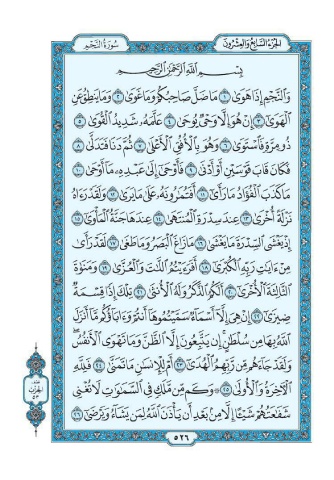 سورة النجم
الجزء السابع والعشرون
بسم الله الرحمن الرحيم
والنجم إذا هوى ١ ما ضل صاحبكم وما غوى ٢ وما ينطق عن
الهوى ٣ إن هو إلا وحي يوحى ٤ علمه شديد القوى ٥
ذو مرة فاستوى ٦ وهو بالأفق الأعلى ٧ ثم دنا فتدلى ٨
فكان قاب قوسين أو أدنى ٩ فأوحى إلى عبده ما أوحى ١٠
ما كذب الفؤاد ما رأى ١١ أفتمارونه على ما يرى ١٢ ولقد رءاه
نزلة أخرى ١٣ عند سدرة المنتهى ١٤ عندها جنة المأوى ١٥
إذ يغشى السدرة ما يغشى ١٦ ما زاغ البصر وما طغى ١٧ لقد رأى
من ءايات ربه الكبرى ١٨ أفرءيتم اللات والعزى ١٩ ومنوة
الثالثة الأخرى ٢٠ ألكم الذكر وله الأنثى ٢١ تلك إذا قسمة
ضيزى ٢٢ إن هي إلا أسماء سميتموها أنتم وءاباؤكم ما أنزل
الله بها من سلطان إن يتبعون إلا الظن وما تهوى الأنفس
ولقد جاءهم من ربهم الهدى ٢٣ أم للإنسان ما تمنى ٢٤ فلله
الآخرة والأولى ٢٥ وكم من ملك في السماوات لا تغني
شفاعتهم شيئا إلا من بعد أن يأذن الله لمن يشاء ويرضى ٢٦
٥٢٦